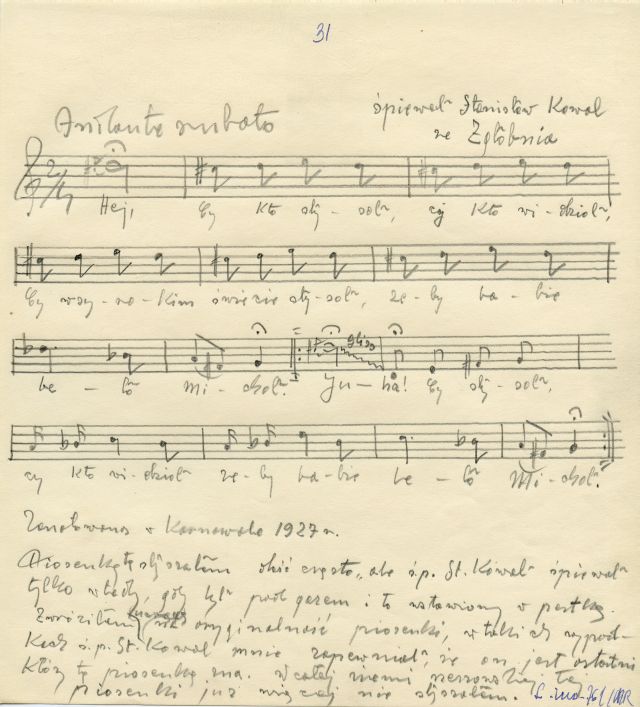 31
Andante rubato
śpiewał Stanisław Kowal
ze Zgłobnia
Hej, Cy kto słysoł, cy kto widzioł,
Cy wsy-kim świecie słysoł, ze-by ba-bie
be-ło Mi-choł. Ju-ha! Cy słysoł,
cy kto widzioł ze-by ba-bie be-ło Mi-choł.
Zanotowano w Karnawale 1927 r.
Piosenkę tę słyszałem dość często, ale ś.p. St. Kowal śpiewał
tylko wtedy, gdy był pod gazem i to wstawiony w pestkę.
Zwróciłem uwagę na oryginalność piosenki, w takich wypad-
kach ś.p. St. Kowal mnie zapewniał, że on jest ostatni
który tę piosenkę zna. W całej ziemi rzeszowskiej tej
piosenki już więcej nie słyszałem.